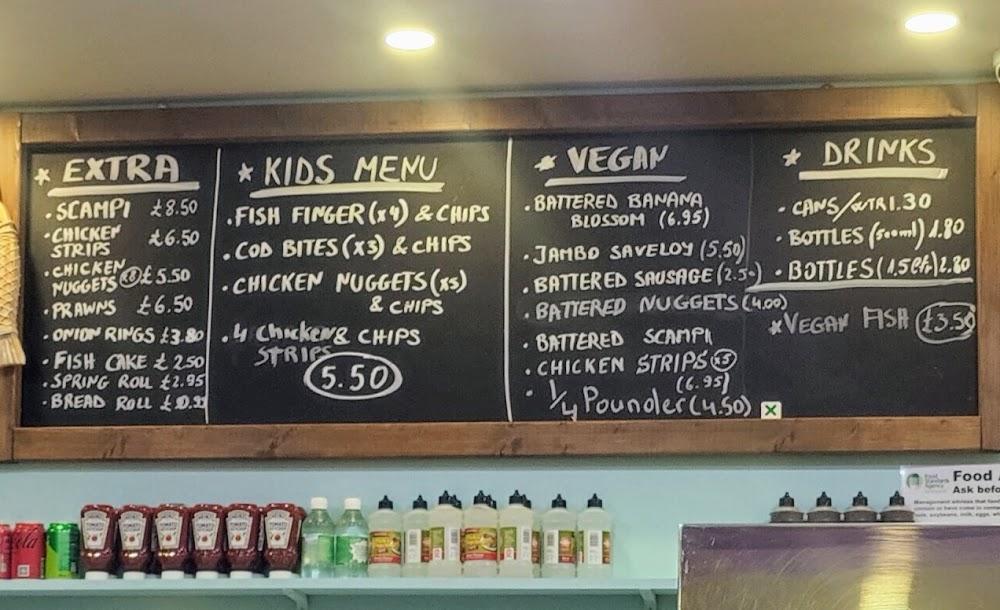 * EXTRA
• SCAMPI £8.50
• CHICKEN
STRIPS £6.50
• CHICKEN
NUGGETS x8 £5.50
• PRAWNS £6.50
ONION RINGS £3.80
• FISH CAKE £2.50
• SPRING ROLL £2.95
• BREAD ROLL
* KIDS MENU
• FISH FINGER (x4) & CHIPS
• COD BITES (x3) & CHIPS
• CHICKEN NUGGETS (x5)
& CHIPS
• 4 Chicken & CHIPS
STRIPS
5.50
* VEGAN
• BATTERED BANANA
BLOSSOM (6.95)
• JAMBO SAVELOY (5.50)
• BATTERED SAUSAGE (2.50)
• BATTERED NUGGETS (4.00)
• BATTERED SCAMPI
• CHICKEN STRIPS x5
(6.95)
• 1/4 Pounder (4.50)
* DRINKS
• CANS / 1.30
• BOTTLES (500ml) 1.80
• BOTTLES (1.5 2.80
* VEGAN FISH £3.50
Food
Standards
Agency
Food
Ask befo
HEINZ
HEINZ
HEINZ
HEINZ
HEINZ
HEINZ